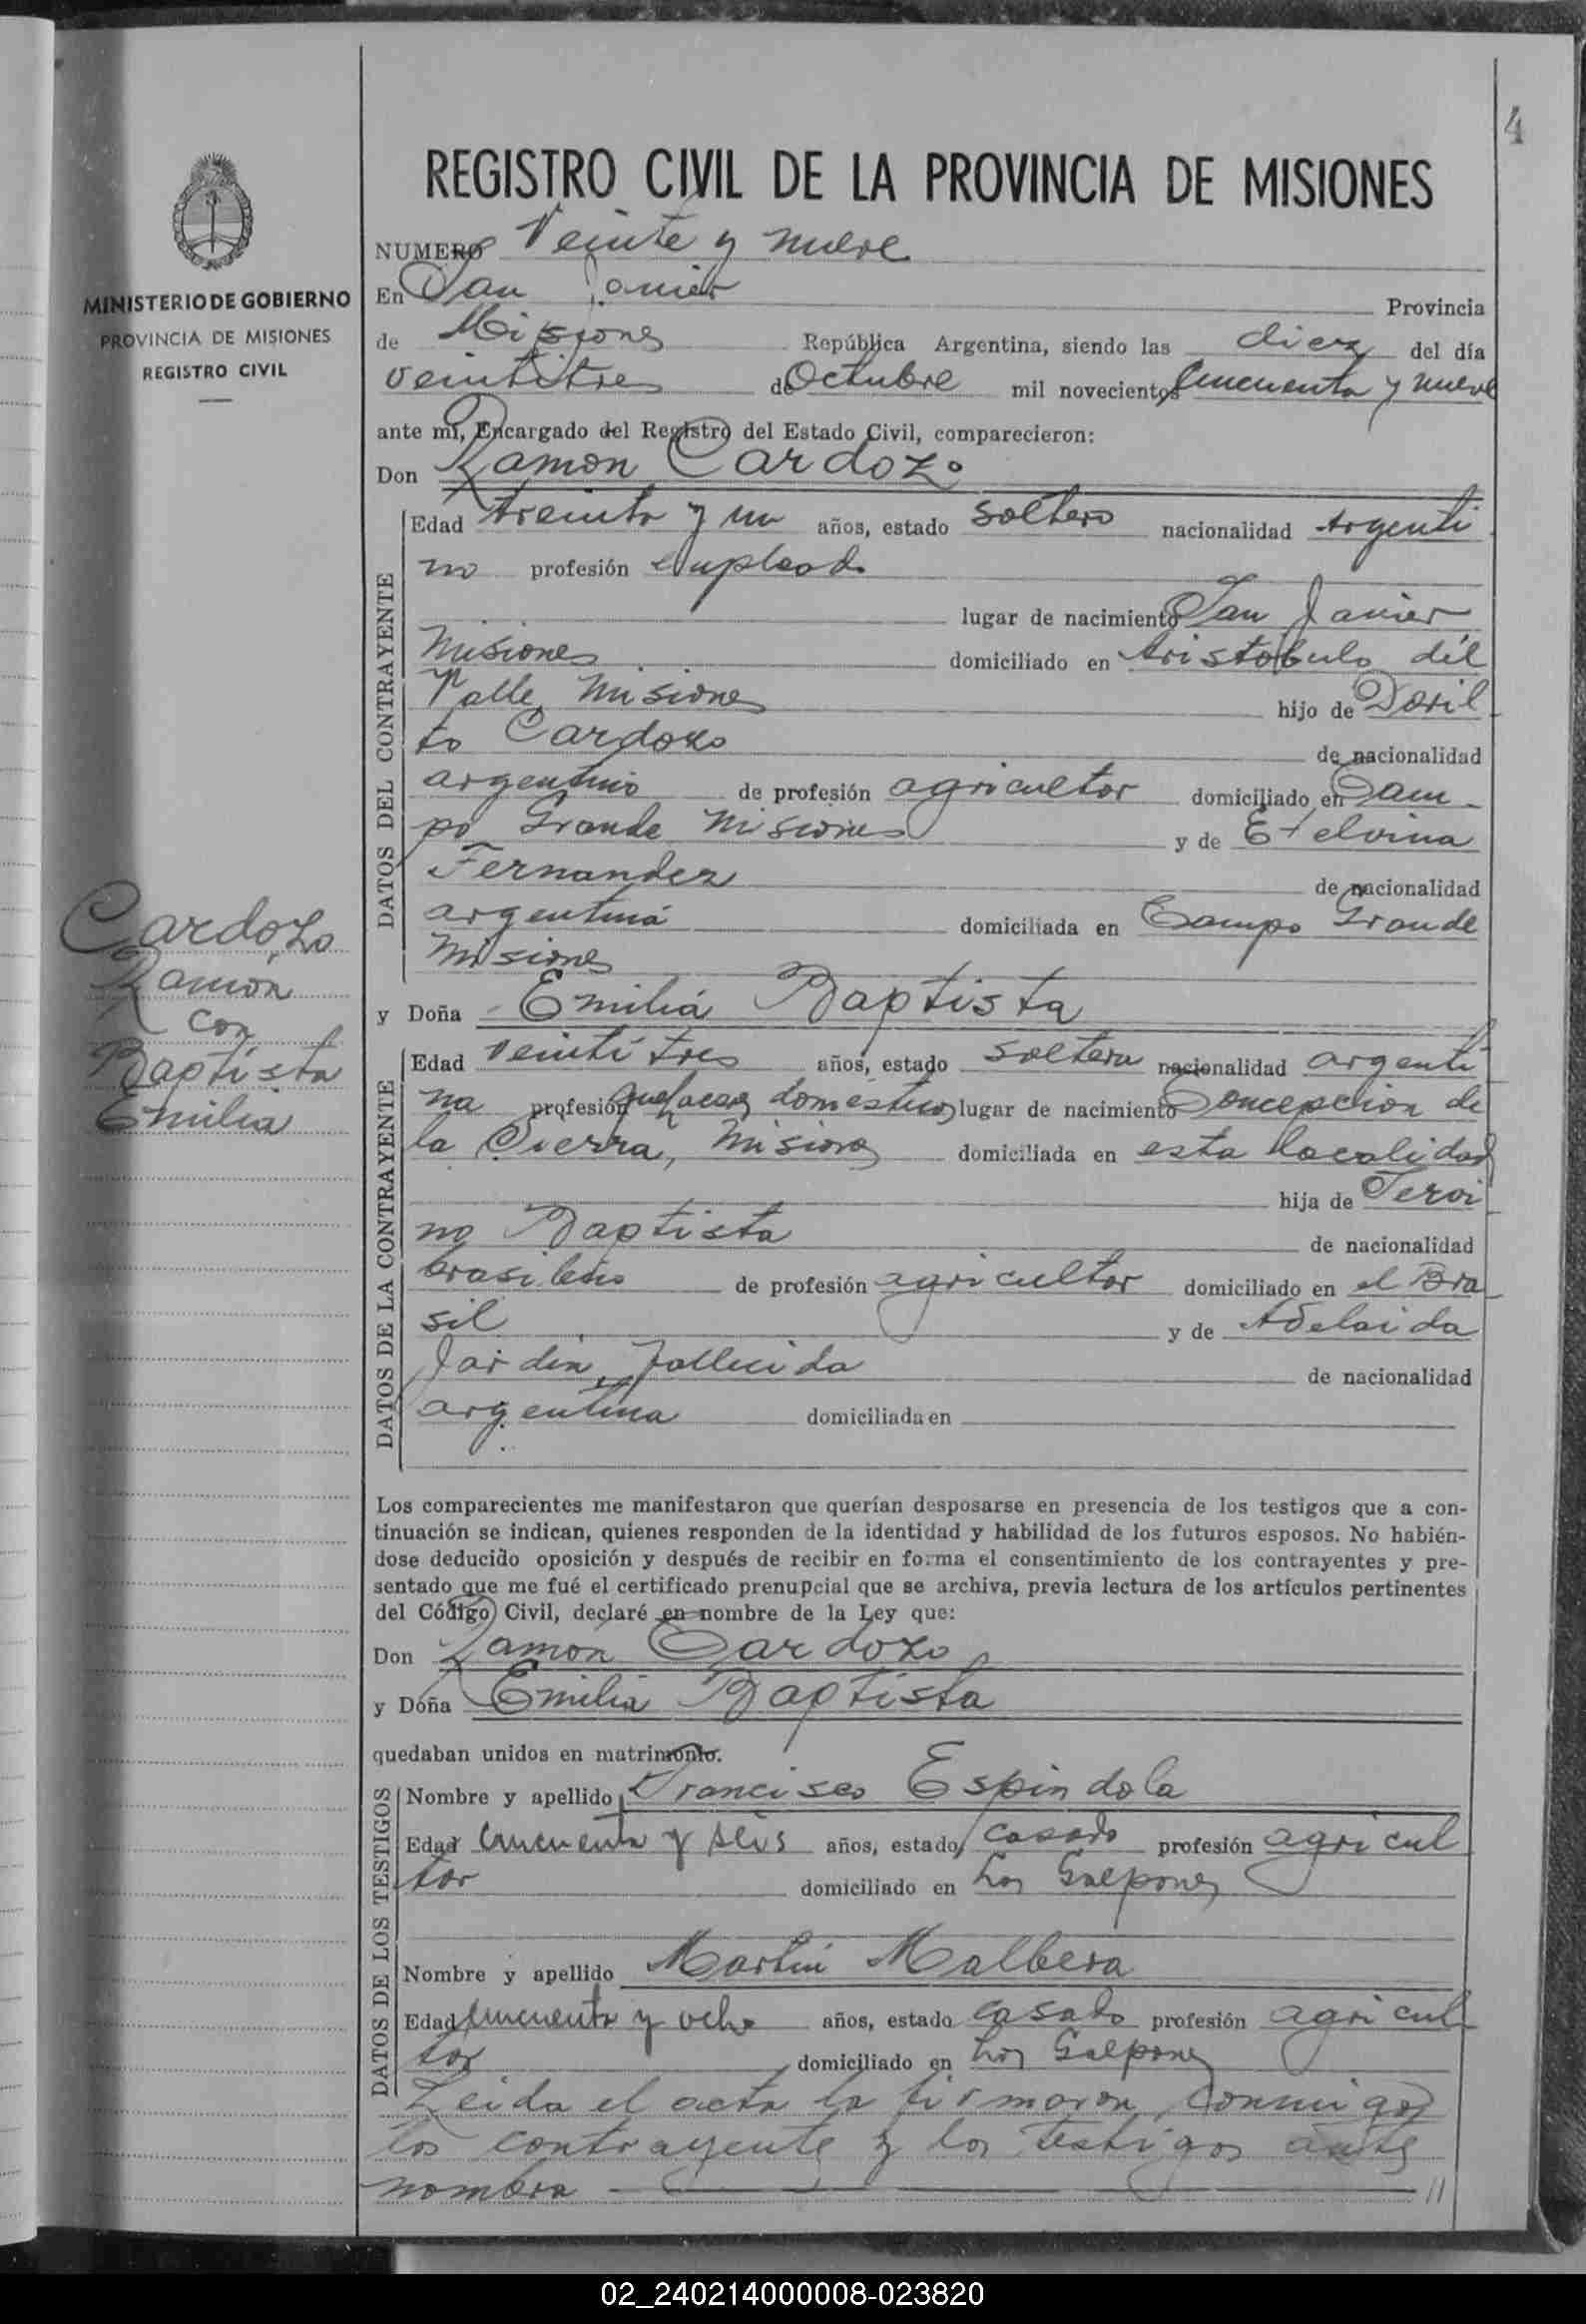 4
REGISTRO CIVIL DE LA PROVINCIA DE MISIONES
MINISTERIO DE GOBIERNO
PROVINCIA DE MISIONES
REGISTRO CIVIL
NUMERO Veinte y nueve
En San Javier Provincia
de Misiones República Argentina, siendo las diez del día
veintitres de Octubre mil novecientos cincuenta y nueve
ante mí, Encargado del Registro del Estado Civil, comparecieron:
Don Ramon Cardozo
DATOS DEL CONTRAYENTE
Edad treinta y un años, estado soltero nacionalidad Argenti
no profesión empleado
lugar de nacimiento San Javier
Misiones domiciliado en Aristobulo del
Valle, Misiones hijo de Doril
to Cardozo de nacionalidad
argentino de profesión agricultor domiciliado en Cam-
po Grande Misiones y de Etelvina
Fernandez de nacionalidad
argentina domiciliada en Campo Grande
Misiones
Cardozo
Ramón
con
Baptista
Emilia
y Doña Emilia Baptista
DATOS DE LA CONTRAYENTE
Edad veintitres años, estado soltera nacionalidad argenti
na profesión quehaceres domésticos lugar de nacimiento Concepcion de
la Sierra, Misiones domiciliada en esta localidad
hija de
no Baptista de nacionalidad
brasileño de profesión agricultor domiciliado en el Bra
sil y de Adelaida
Jardin, fallecida de nacionalidad
argentina domiciliada en
Los comparecientes me manifestaron que querían desposarse en presencia de los testigos que a con-
tinuación se indican, quienes responden de la identidad y habilidad de los futuros esposos. No habién-
dose deducido oposición y después de recibir en forma el consentimiento de los contrayentes y pre-
sentado que me fué el certificado prenupcial que se archiva, previa lectura de los artículos pertinentes
del Código Civil, declaré en nombre de la Ley que:
Don Ramon Cardozo
y Doña Emilia Baptista
quedaban unidos en matrimonio.
DATOS DE LOS TESTIGOS
Nombre y apellido Francisco Espindola
Edad cincuenta y seis años, estado casado profesión agricul
tor domiciliado en Los Galpones
Nombre y apellido Martin Malbera
Edad cincuenta y ocho años, estado casado profesión agricul
tor domiciliado en Los Galpones
Leida el acta la firmaron conmigo
los contrayentes y los testigos ante
nombra
02_240214000008-023820